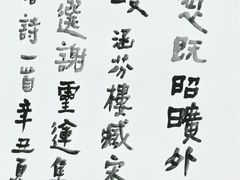 抱既昭曠外
涵芬樓藏宋
選謝靈運集
詩一首辛丑夏